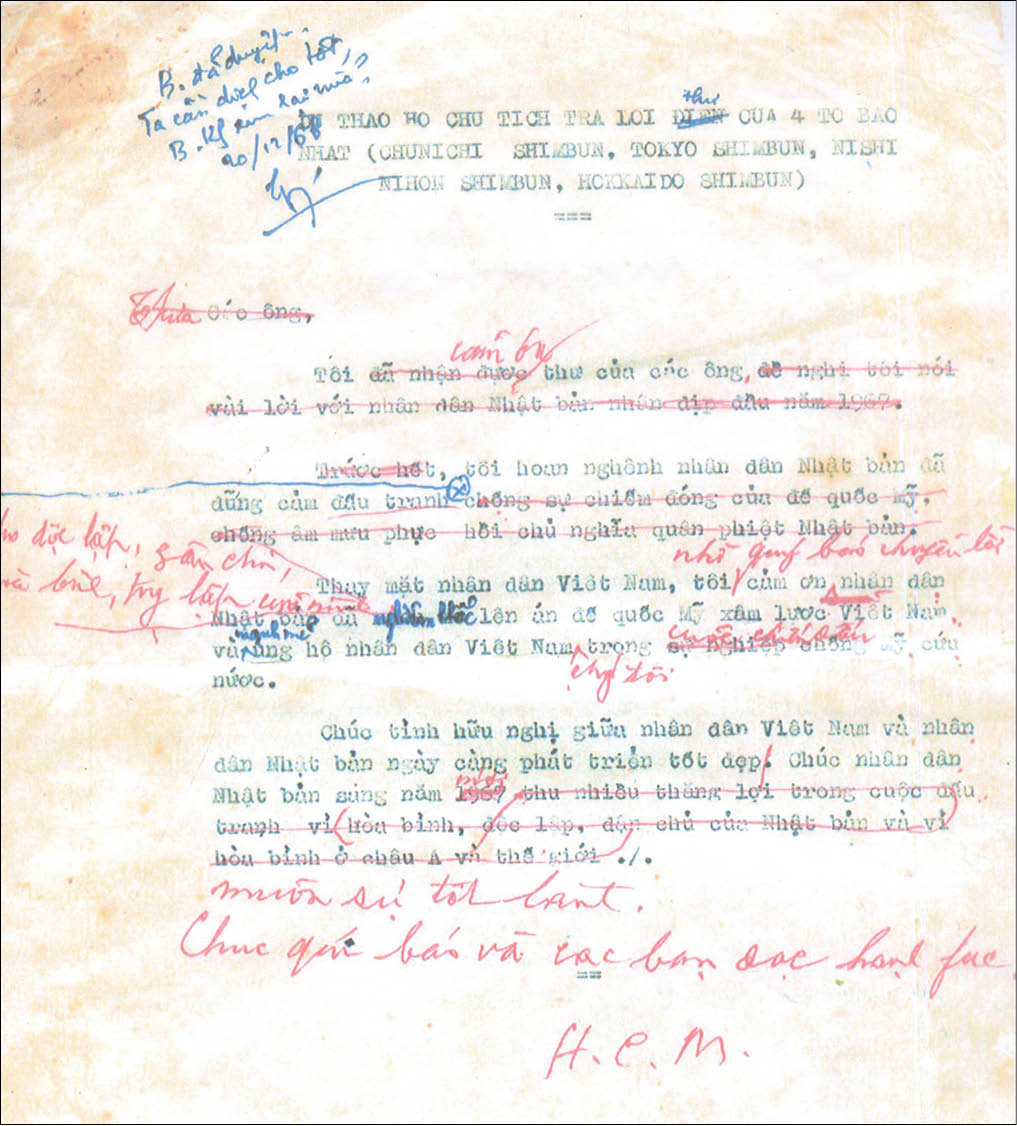 B. đã duyệt.
Ta cần dịch cho tốt,
B. Kỳ xem lại nữa
20/12/66
thư
THAO HO CHU TICH TRA LOI ĐIEN CUA 4 TO BAO
NHAT (CHUNICHI SHIMBUN, TOKYO SHIMBUN, NISHI
NIHON SHIMBUN, HOKKAIDO SHIMBUN)
===
Thưa Các ông,
cảm ơn
Tôi đã nhận được thư của các ông, đề nghị tôi nói
vài lời với nhân dân Nhật bản nhân dịp đầu năm 1967.
Trước hết, tôi hoan nghênh nhân dân Nhật bản đã
dũng cảm đấu tranh chống sự chiếm đóng của đế quốc mỹ,
chống âm mưu phục hồi chủ nghĩa quân phiệt Nhật bản.
cho độc lập, dân chủ, nhờ quý báo chuyển lời
Thay mặt nhân dân Việt Nam, tôi cảm ơn nhân dân
Nhật bản đã nghiêm khắc lên án đế quốc Mỹ xâm lược Việt Nam
mạnh mẽ
và ủng hộ nhân dân Việt Nam trong sự nghiệp chống mỹ cứu
chúng tôi
nước.
Chúc tình hữu nghị giữa nhân dân Việt Nam và nhân
dân Nhật bản ngày càng phát triển tốt đẹp. Chúc nhân dân
mới
Nhật bản sang năm 1967 thu nhiều thắng lợi trong cuộc đấu
tranh vì hòa bình, độc lập, dân chủ của Nhật bản và vì
hòa bình ở châu Á và thế giới ./.
muôn sự tốt lành.
Chúc quý báo và các bạn đọc hạnh fúc
===
H. C. M.